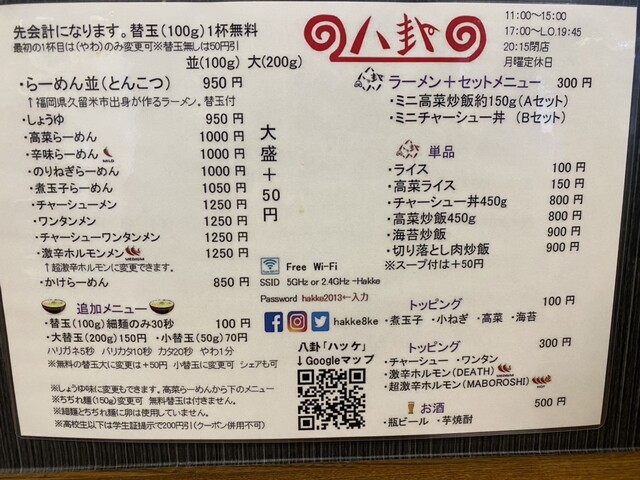 先会計になります。替玉(100g)1杯無料
最初の1杯目は(やわ)のみ変更可※替玉無しは50円引
並(100g) 大(200g)
・らーめん並(とんこつ) 950 円
↑福岡県久留米市出身が作るラーメン。替玉付
・しょうゆ 950 円
・高菜らーめん 1000 円
・辛味らーめん 1000 円
・のりねぎらーめん 1000 円
・煮玉子らーめん 1050 円
・チャーシューメン 1250 円
・ワンタンメン 1250 円
・チャーシューワンタンメン 1250 円
・激辛ホルモンメン 1250 円
↑超激辛ホルモンに変更できます。
・かけらーめん 850 円
大盛+50円
追加メニュー
・替玉(100g)細麺のみ30秒 100 円
・大替玉(200g)150円 ・小替玉(50g)70円
ハリガネ5秒 バリカタ10秒 カタ20秒 やわ1分
※無料の替玉大に変更は+50円 小変更可 シェアも可
※しょうゆ味に変更もできます。高菜らーめんから下のメニュー
※ちぢれ麺(150g)変更可 無料替玉は付きません。
※細麺とちぢれ麺に卵は使用していません。
※高校生以下は学生証提示で200円引(クーポン併用不可)
Free Wi-Fi
SSID 5GHz or 2.4GHz -Hakke
Password hakke2013←入力
hakke8ke
八卦「ハッケ」
↓Googleマップ
八卦
11:00～15:00
17:00～L.O.19:45
20:15閉店
月曜定休日
ラーメン+セットメニュー 300 円
・ミニ高菜炒飯約150g(Aセット)
・ミニチャーシュー丼 (Bセット)
単品
・ライス 100 円
・高菜ライス 150 円
・チャーシュー丼450g 800 円
・高菜炒飯450g 800 円
・海苔炒飯 900 円
・切り落とし肉炒飯 900 円
※スープ付は+50円
トッピング 100 円
・煮玉子 ・小ねぎ ・高菜 ・海苔
トッピング 300 円
・チャーシュー ・ワンタン
・激辛ホルモン(DEATH)
・超激辛ホルモン(MABOROSHI)
お酒 500 円
・瓶ビール ・芋焼酎